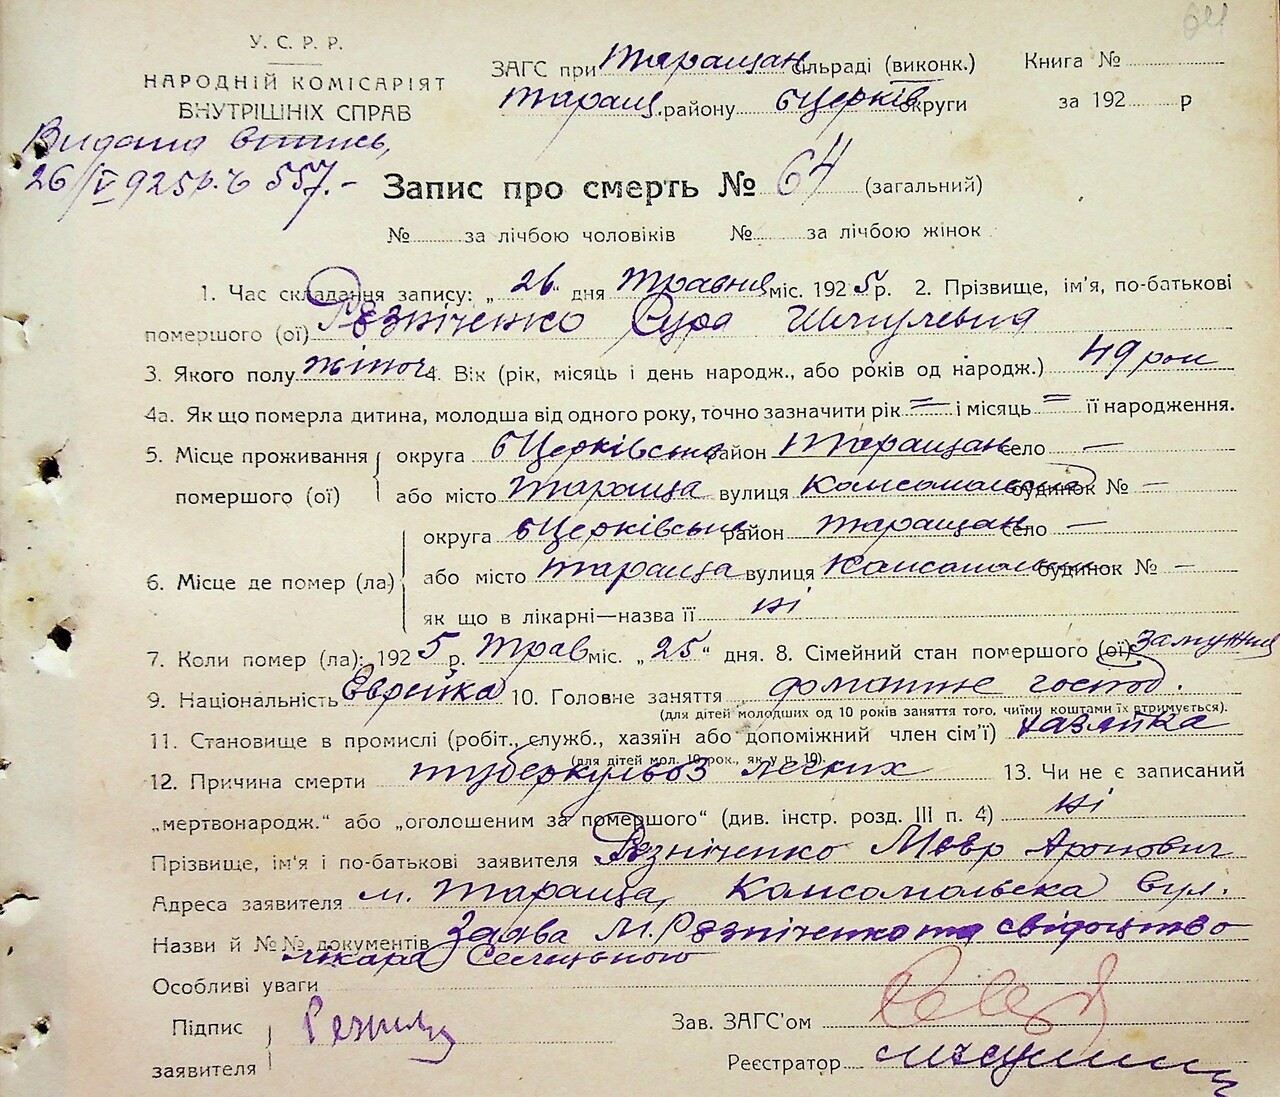 64
У. С. Р. Р.
НАРОДНІЙ КОМІСАРІЯТ
ВНУТРІШНІХ СПРАВ
ЗАГС при Таращан. сільраді (виконк.)
Таращ. району БЦерків округи
Книга №
за 192 р
Видана впись,
26/V 925 р. Ч 557.-
Запис про смерть № 64 (загальний)
№ за лічбою чоловіків № за лічбою жінок
1. Час складання запису: „26" дня травня міс. 1925 р. 2. Прізвище, ім'я, по-батькові
помершого (ої) Рєзніченко Сура Шмулевна
3. Якого полу жіноч 4. Вік (рік, місяць і день народж., або років од народж.) 49 рок
4а. Як що померла дитина, молодша від одного року, точно зазначити рік = і місяць = її народження.
5. Місце проживання помершого (ої) округа БЦерківська район Таращан село —
або місто Тараща вулиця Комсомольска будинок № —
6. Місце де помер (ла) округа БЦерківська район Таращан село —
або місто Тараща вулиця Комсомольска будинок № —
як що в лікарні—назва її ні
7. Коли помер (ла): 1925 р. Трав міс. „25" дня. 8. Сімейний стан помершого (ої) замужня
9. Національність Єврейка 10. Головне заняття домашнє господ.
(для дітей молодших од 10 років заняття того, чиїми коштами їх втримується).
11. Становище в промислі (робіт., служб., хазяїн або допоміжний член сім'ї) хазяйка
(для дітей мол. 10 рок., як у п. 10).
12. Причина смерти туберкульоз легких 13. Чи не є записаний
„мертвонародж." або „оголошеним за помершого" (див. інстр. розд. III п. 4) ні
Прізвище, ім'я і по-батькові заявителя Рєзніченко Мовр Аронович
Адреса заявителя м. Тараща, Комсомольска вул.
Назви й №№ документів Заява М. Рєзніченко та свідоцтво
лікара
Особливі уваги
Підпис заявителя
Зав. ЗАГС'ом
Реєстратор